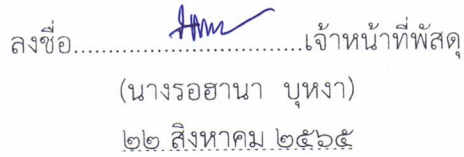 ลงชื่อ....................................เจ้าหน้าที่พัสดุ
(นางรอฮานา บุหงา)
๒๒ สิงหาคม ๒๕๖๕